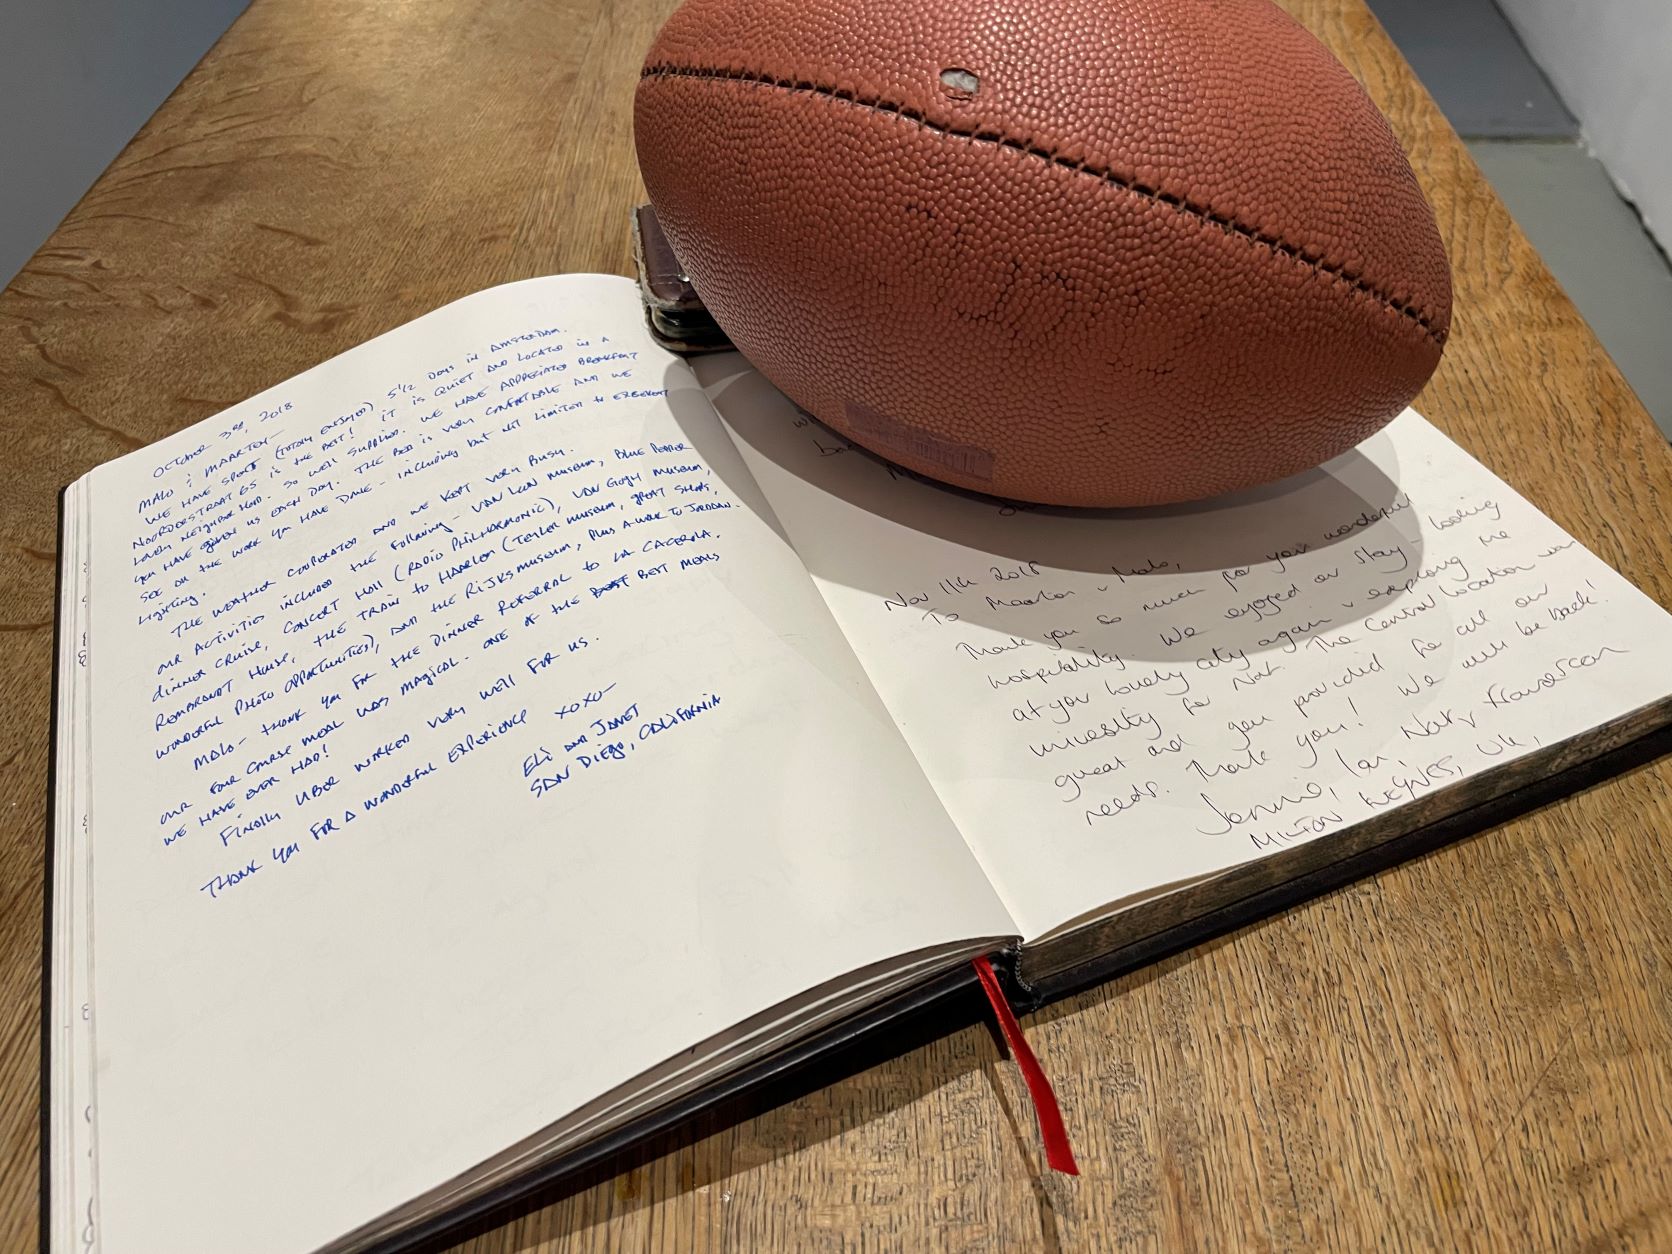 OCTOBER 3RD, 2018
MALO & MAARTEN—
WE HAVE SPENT (TOTALLY ENJOYED) 5 1/2 DAYS IN AMSTERDAM.
NOORDERSTRAAT 65 IS THE BEST! IT IS QUIET AND LOCATED IN A
LOVELY NEIGHBORHOOD. SO WELL SUPPLIED. WE HAVE APPRECIATED BREAKFAST
YOU HAVE GIVEN US EACH DAY. THE BED IS VERY COMFORTABLE AND WE
SEE ALL THE WORK YOU HAVE DONE - INCLUDING BUT NOT LIMITED TO EXCELLENT
LIGHTING.
THE WEATHER COOPERATED AND WE KEPT VERY BUSY.
OUR ACTIVITIES INCLUDED THE FOLLOWING - VAN LOON MUSEUM, BLUE PEPPER
DINNER CRUISE, CONCERT HALL (RADIO PHILHARMONIC), VAN GOGH MUSEUM,
REMBRANDT HOUSE, THE TRAIN TO HAARLEM (TEYLER MUSEUM, GREAT SHOPS,
WONDERFUL PHOTO OPPORTUNITIES), AND THE RIJKSMUSEUM, PLUS A WALK TO JORDAAN.
MALO - THANK YOU FOR THE DINNER REFERRAL TO LA CACEROLA.
OUR FOUR COURSE MEAL WAS MAGICAL. ONE OF THE BEST BEST MEALS
WE HAVE EVER HAD!
FINALLY UBER WORKED VERY WELL FOR US.
THANK YOU FOR A WONDERFUL EXPERIENCE XOXO—
ELI AND JANET
SAN DIEGO, CALIFORNIA
Nov 11th 2018
To Maarten & Malo,
Thank you so much for your wonderful
hospitality. We enjoyed our stay - looking
at your lovely city again & exploring the
university for Nat. The central location was
great and you provided for all our
needs. Thank you! We will be back!
Jennie, Ian, Nat
MILTON KEYNES, UK,